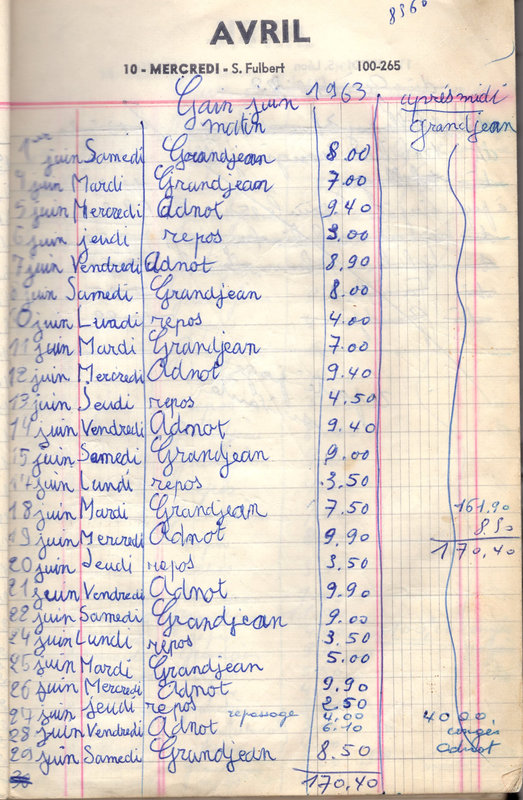 8360
AVRIL
10 - MERCREDI - S. Fulbert 100-265
Gain juin 1963 après midi
matin Grandjean
1er juin Samedi Grandjean 8.00
4 juin Mardi Grandjean 7.00
5 juin Mercredi Adnot 9.40
6 juin jeudi repos 3.00
7 juin Vendredi Adnot 8.90
8 juin Samedi Grandjean 8.00
10 juin Lundi repos 4.00
11 juin Mardi Grandjean 7.00
12 juin Mercredi Adnot 9.40
13 juin Jeudi repos 4.50
14 juin Vendredi Adnot 9.40
15 juin Samedi Grandjean 9.00
17 juin Lundi repos 3.50
18 juin Mardi Grandjean 7.50 161.90
19 juin Mercredi Adnot 9.90 8.50
20 juin Jeudi repos 3.50 170.40
21 juin Vendredi Adnot 9.90
22 juin Samedi Grandjean 9.00
24 juin Lundi repos 3.50
25 juin Mardi Grandjean 5.00
26 juin Mercredi Adnot 9.90
27 juin jeudi repos 2.50
repassage 4.00 40 00
28 juin Vendredi Adnot 6.10 congés
29 juin Samedi Grandjean 8.50 Adnot
170.40